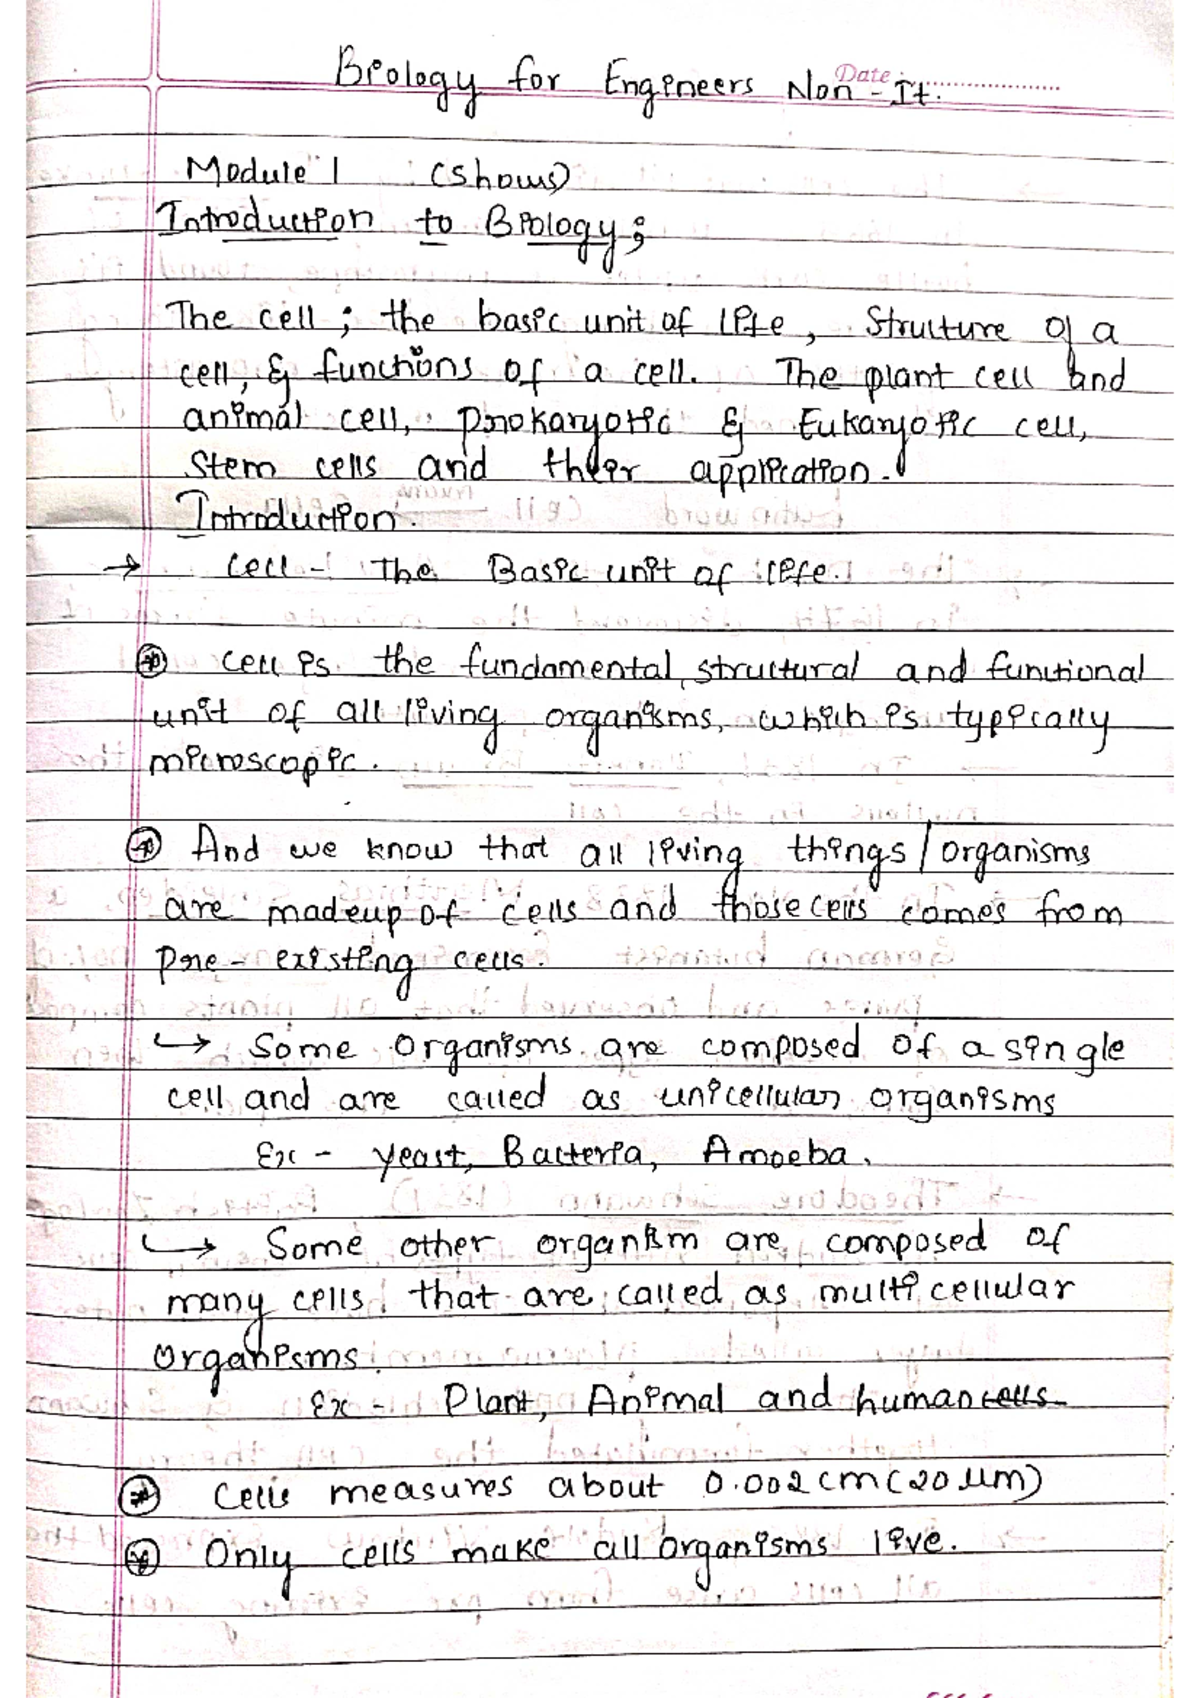 Biology for Engineers Non - It.
Date
Module 1 (5hours)
Introduction to Biology;
The cell; the basic unit of life, Structure of a
cell, & functions of a cell. The plant cell and
animal cell, prokaryotic & Eukaryotic cell,
Stem cells and their application.
Introduction.
→ Cell - The Basic unit of life.
Cell is the fundamental, structural and functional
unit of all living organisms, which is typically
microscopic.
And we know that all living things/organisms
are madeup of cells and those cells comes from
pre-existing cells.
↳ Some organisms are composed of a single
cell and are called as unicellular organisms
Ex - yeast, Bacteria, Amoeba.
↳ Some other organism are composed of
many cells that are called as multicellular
organisms.
Ex - Plant, Animal and human cells
Cells measures about 0.002cm(20 µm)
Only cells make all organisms live.